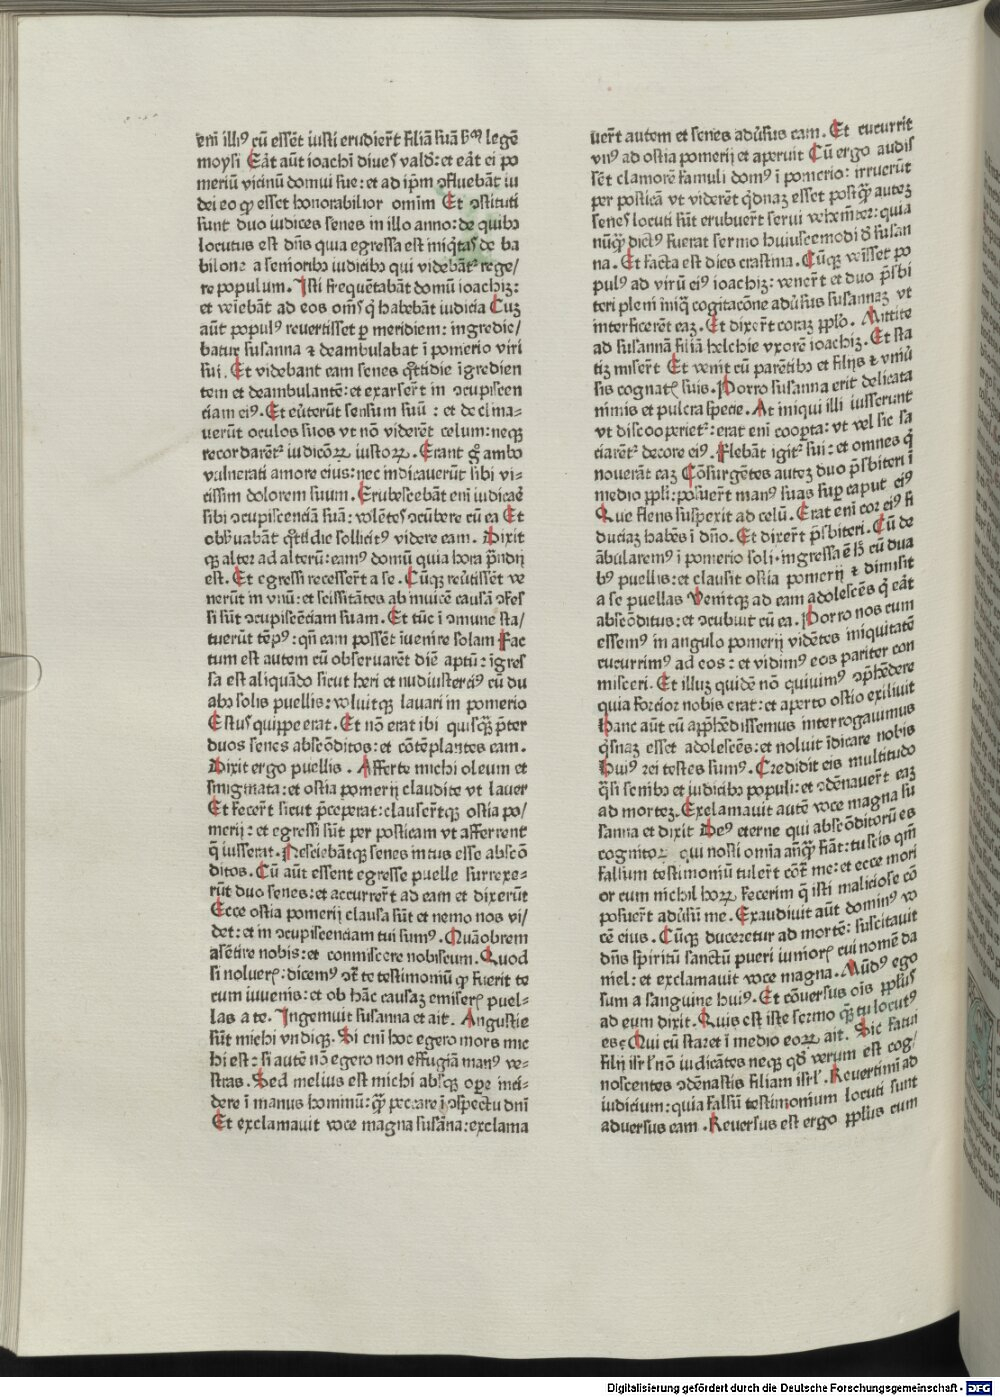 em̄ illiꝰ cū essēt iusti erudier̄t filiā suā ẜm legē
moysi Eāt aūt ioachī diues vald: et eāt ei po
meriū vicinū domui sue: et ad ip̄m ɔfluebāt iu
dei eo ꝙ esset honorabilior om̄im Et ɔstituti
sunt duo iudices senes in illo anno: de quibꝰ
locutus est dn̄s quia egressa est iniq̄tas de ba
bilone a seniorib iudicib qui videbāt rege/
re populum. Isti frequētabāt domū ioachiz:
et veiebāt ad eos om̄s q̄ habebāt iudicia Cuz
aūt populꝰ revertisset ꝑ meridiem: ingredie/
batur susanna ⁊ deambulabat ī pomerio viri
sui. Et videbant eam senes q̄tidie īgredien
tem et deambulantē: et exarser̄t in ɔcupiscen
tiam eiꝰ. Et eūterūt sensum suū: et declina-
uerūt oculos suos vt nō viderēt celum: neqꝫ
recordarēt iudicōꝝ iustoꝝ. Erant g̊ ambo
vulnerati amore eius: nec indicauerūt sibi vi-
cissim dolorem suum. Erubescebāt em̄ iudicaē
sibi ɔcupiscenciā suā: volētes ɔcūbere cū ea Et
obẜuabāt q̄tidie sollicitiꝰ videre eam. Dixit
qꝫ alter ad alterū: eamꝰ domū quia hora prādij
est. Et egressi recesser̄t a se. Cūqꝫ reūtissēt ve
nerūt in vnū: et scissitātes ab inuicē causā ɔfes
si sūt ɔcupiscēciam suam. Et tūc ī ɔmune sta/
tuerūt tēpꝰ: qn̄ eam possēt īuenire solam Fac
tum est autem cū obseruarēt diē aptū: īgres
sa est aliquādo sicut heri et nudiusterciꝰ cū du
abꝰ solis puellis: voluitqꝫ lauari in pomerio
Estus quippe erat. Et nō erat ibi quisq̄ꝫ pter
duos senes abscōditos: et cōtēplantes eam.
Dixit ergo puellis. Afferte michi oleum et
smigmata: et ostia pomerij claudite vt lauer
Et fecer̄t sicut p̄ceperat: clauser̄tqꝫ ostia po/
merij: et egressi sūt per posticam vt afferrent
q̄ iusserat. Nesciebātqꝫ senes intus esse abscō
ditos. Cū aūt essent egresse puelle surrexe-
rūt duo senes: et accurrer̄t ad eam et dixerūt
Ecce ostia pomerij clausa sūt et nemo nos vi/
det: et in ɔcupiscenciam tui sumꝰ. Quāobrem
asētire nobis: et conmiscere nobiscum. Quod
si noluer: dicemꝰ ɔt te testimoniū ꝙ fuerit te
cum iuuenis: et ob hāc causaz emiser puel-
las a te. Ingemuit susanna et ait. Angustie
sūt michi vndiqꝫ. Si em̄ hoc egero mors mic
hi est: si autē nō egero non effugiā manꝰ ve-
stras. Sed melius est michi absqꝫ oꝑe inci-
dere ī manus hominū: q̄ꝫ peccare ī ɔspectu dn̄i
Et exclamauit voce magna susāna: exclama
uer̄t autem et senes adusus eam. Et cucurrit
vnꝰ ad ostia pomerij et aperuit Cū ergo audis
sēt clamorē famuli domꝰ ī pomerio: irruerūt
per posticā vt viderēt q̄dnaz esset postq̄ꝫ autez
senes locuti sūt erubuer̄t serui vehemēter: quia
nūq̄ꝫ dictꝰ fuerat sermo huiuscemodi d̄ susan
na. Et facta est dies crastina. Cūqꝫ veisset po
pulꝰ ad virū eiꝰ ioachiz: vener̄t et duo p̄sbi
teri pleni iniq̄ cogitacōne aduſus susannaz vt
interficerēt eaz. Et dixer̄t coraz pplo. Mittite
ad susannā filiā helchie vxorē ioachiz. Et sta
tiz miser̄t Et venit cū parētibꝰ et filijs ⁊ vniū
sis cognat suis. Porro susanna erit delicata
nimis et pulcra specie. At iniqui illi iusserunt
vt discooperiet: erat em̄ cooꝑta: vt vel sic sa
ciarēt decore eiꝰ. Flebāt igit sui: et omnes q̄
nouerāt eaz Cōsurgētes autez duo p̄sbiteri ī
medio ppli: posuer̄t manꝰ suas suꝑ caput eiꝰ
Que flens suspexit ad celū. Erat em̄ cor eiꝰ fi
duciaz habēs ī dn̄o. Et dixer̄t p̄sbiteri. Cū de
ābularemꝰ ī pomerio soli. ingressa ē h̄ cū dua
bꝰ puellis: et clausit ostia pomerij ⁊ dimisit
a se puellas Venitqꝫ ad eam adolescēs q̄ eāt
abscōditus: et ɔcubuit cū ea. Porro nos cum
essemꝰ in angulo pomerij vidētes iniquitatē
cucurrimꝰ ad eos: et vidimꝰ eos pariter con
misceri. Et illuz quidē nō quiuimꝰ ɔp̄hēdere
quia forcior nobis erat: et aperto ostio exiliuit
Hanc aūt cū app̄hēdissemus interrogauimus
q̄snaz esset adolescēs: et noluit īdicare nobis
Huiꝰ rei testes sumꝰ. Credidit eis multitudo
q̄si senibꝰ et iudicibꝰ populi: et ɔdēnauer̄t eaz
ad mortez. Exclamauit autē voce magna su
sanna et dixit Deꝰ eterne qui abscōditorū es
cognitor qui nosti omia ānq̄ꝫ fiāt: tu scis qm̄
falsum testimoniū tuler̄t cōt me: et ecce mori
or cum nichil hoꝝ fecerim q̄ isti maliciose cō
posuer̄t aduſū me. Exaudiuit aūt dominꝰ vo
cē eius. Cūqꝫ duceretur ad mortē: suscitauit
dn̄s spiritū sanctū pueri iunior cui nomē da
niel: et exclamauit voce magna. Mūdꝰ ego
sum a sanguine huiꝰ. Et cōuersus ois pplus
ad eum dixit. Quis est iste sermo q̄ꝫ tu locutꝰ
es Qui cū staret ī medio eoꝝ ait. Sic fatui
filij isrl nō iudicātes neqꝫ qd verum est cog/
noscentes ɔdēnastis filiam isrl. Reuertimī ad
iudicium: quia falsū testimonium locuti sunt
aduersus eam. Reuersus est ergo pplus cum
Digitalisierung gefördert durch die Deutsche Forschungsgemeinschaft - DFG